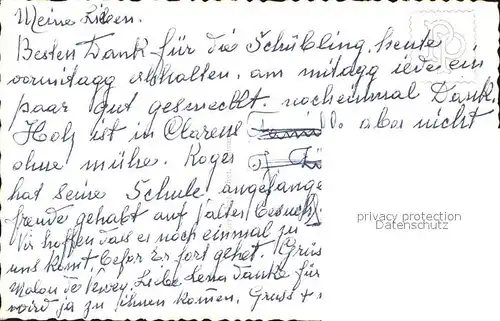 Meine Lieben.
Besten Dank für die Schübling, heute
vormitagg erhalten, am mitagg jede ein
paar gut gesmeckt. nocheinmal Dank.
Holz ist in Clarens aber nicht
ohne mühe. Roger
hat seine Schule angefange
freude gehabt auf Besuch
Wir hoffen das er noch einmal zu
uns komt, befor er fort gehet. Grüs
Liebe Lena danke für
wird ja zu ihnen komen, Gruss +
privacy protection
Datenschutz